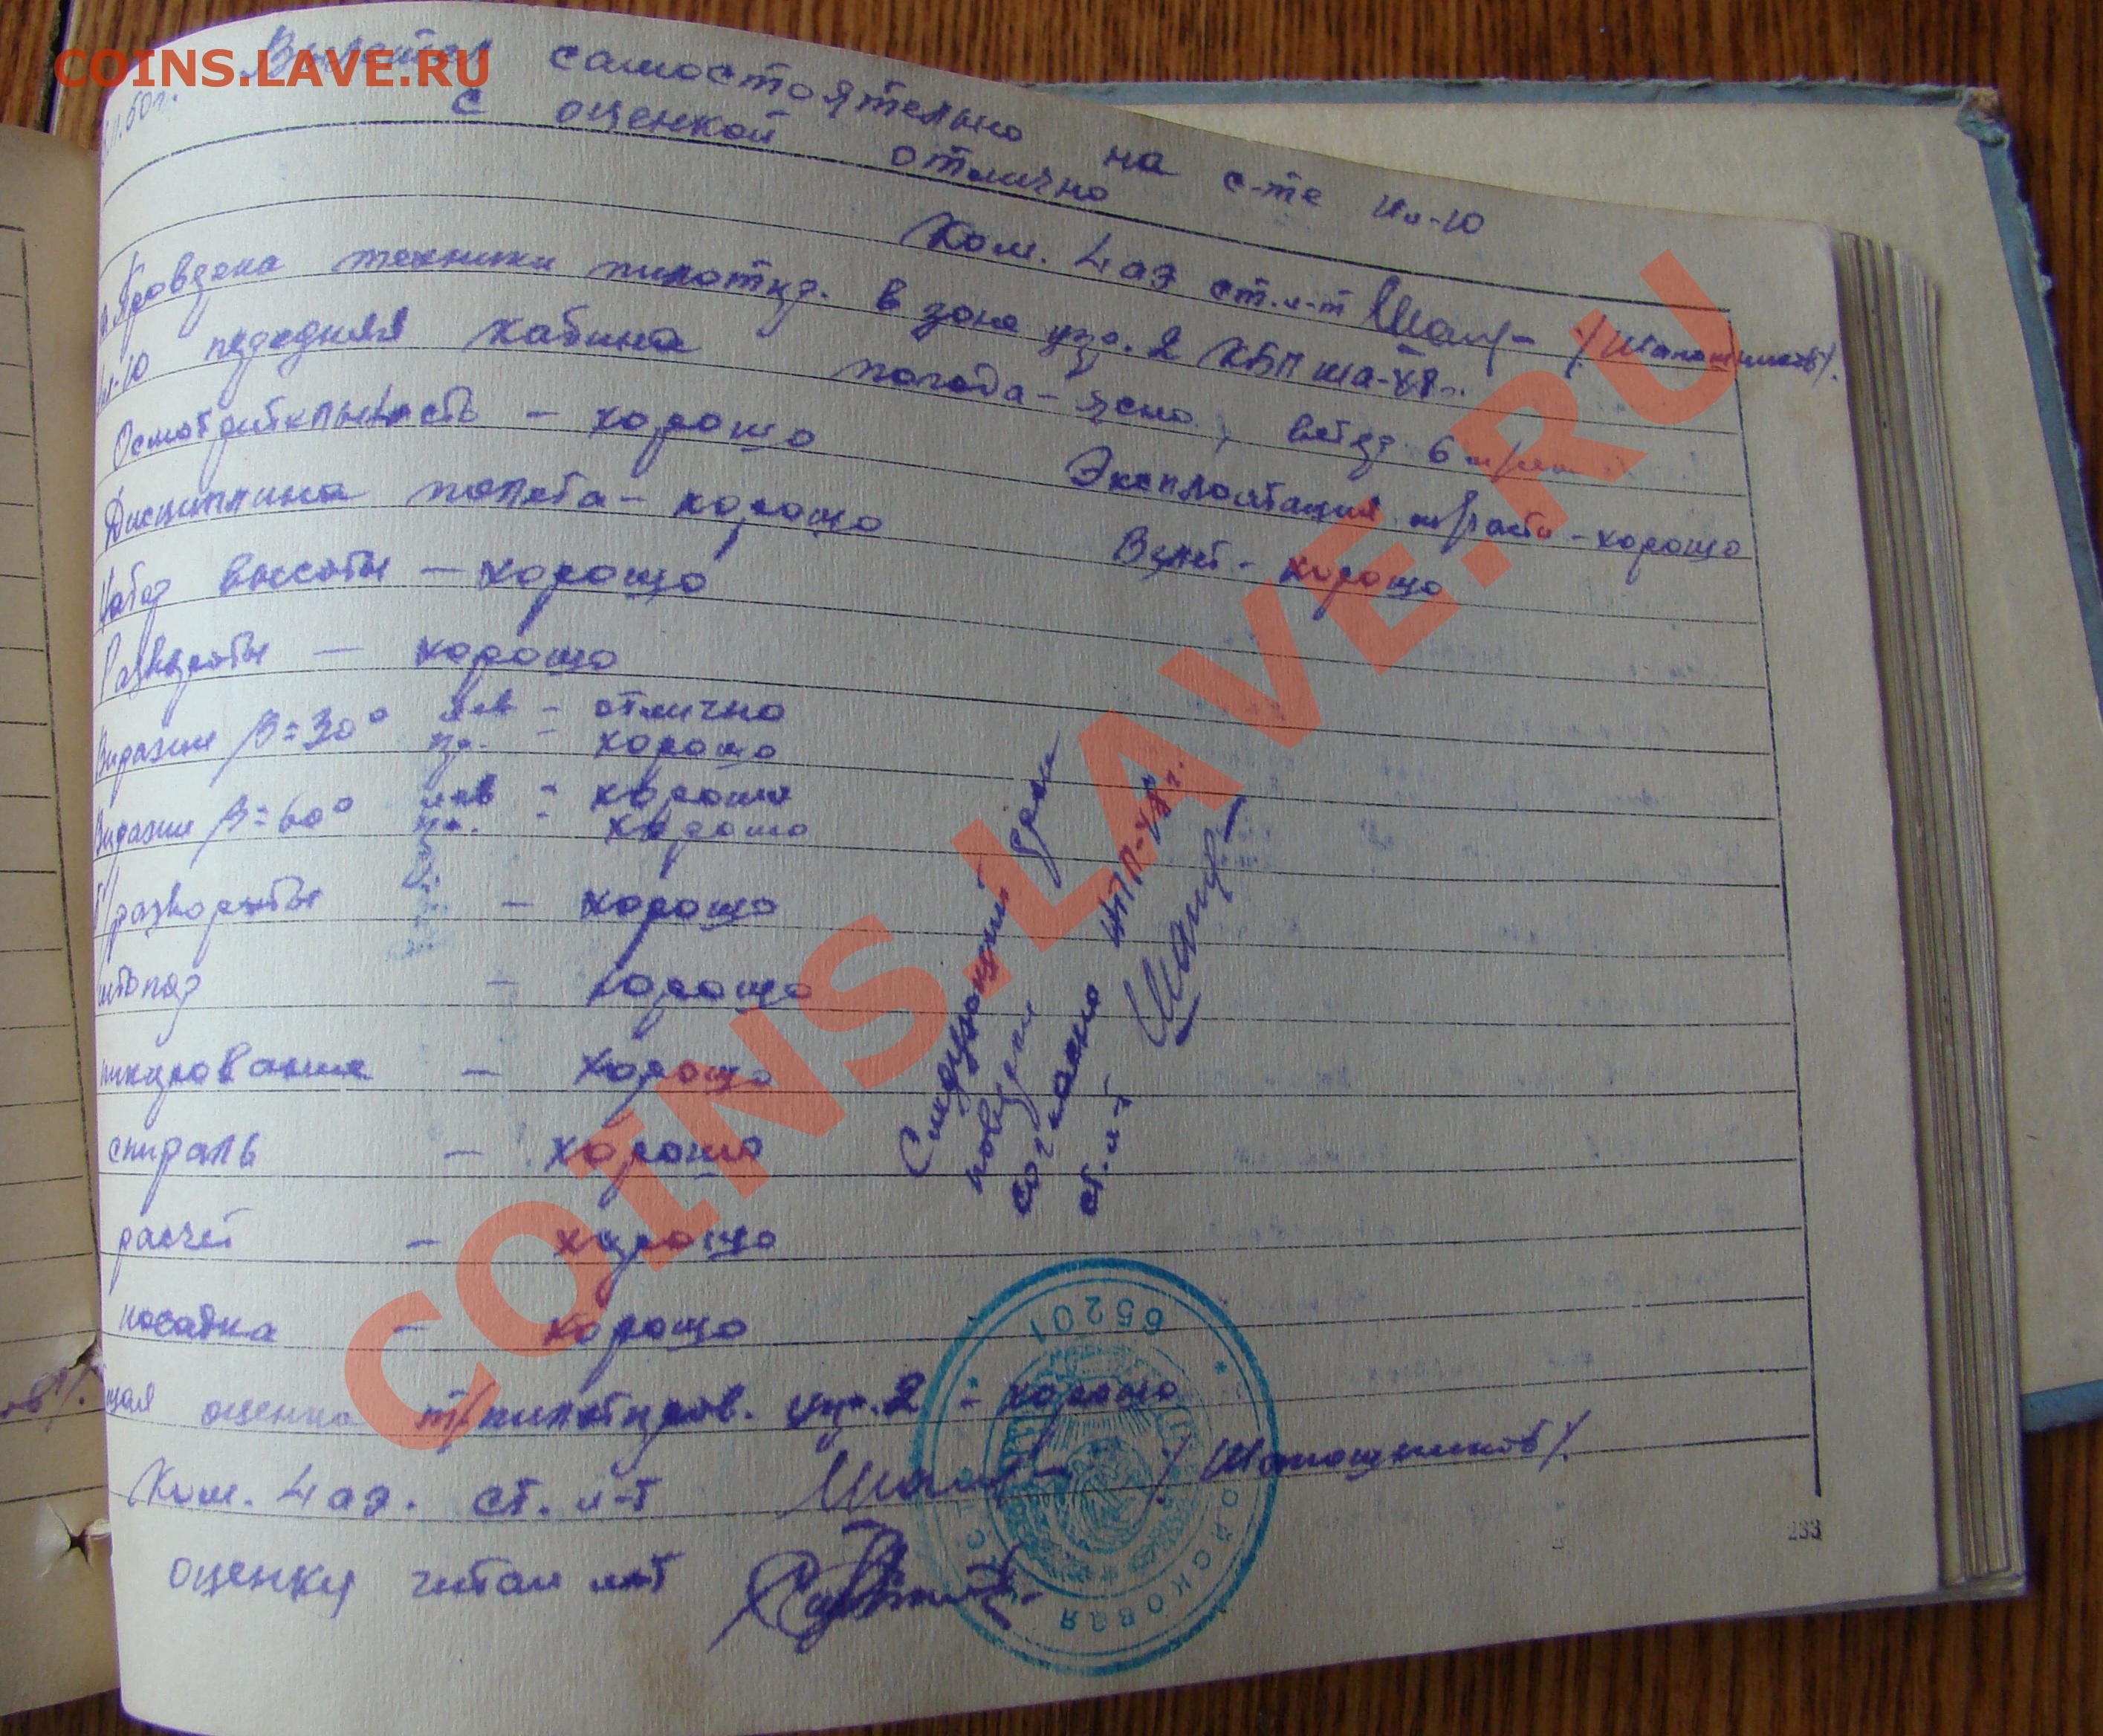 COINS.LAVE.RU
Вылетел самостоятельно на с-те Ил-10
с оценкой отлично
Ком. 4 аэ ст. л-т /Шапошников/.
Проверка техники пилотир. в зоне упр. 2 КБП ША-48г.
Ил-10 передняя кабина погода - ясно, ветер 6 м/сек
Осмотрительность - хорошо Эксплоатация м/части - хорошо
Дисциплина полета - хорошо Взлет - хорошо
Набор высоты - хорошо
Развороты - хорошо
Виражи β=30° лев - отлично
пр. - хорошо
Виражи β=60° лев - хорошо
пр. - хорошо
б/развороты - хорошо
штопор - хорошо
пикирование - хорошо
спираль - хорошо
расчет - хорошо
посадка - хорошо
Следующий срок
поверки
согласно НПП-48г.
ст. л-т
щая оценка т/пилотиров. упр. 2 - хорошо
Ком. 4 аэ. ст. л-т /Шапошников/.
оценку читал л-т
65201
ВОЙСКОВАЯ ЧАСТЬ
233
COINS.LAVE.RU